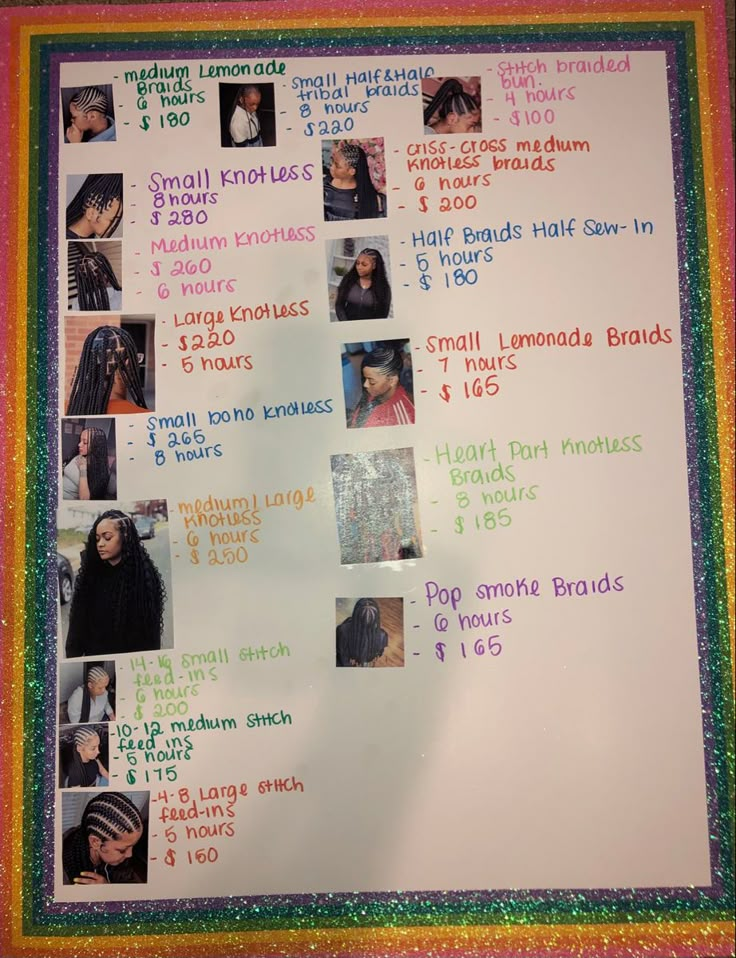 - medium Lemonade
Braids
- 6 hours
- $ 180
- Small Half & Half
tribal braids
- 8 hours
- $220
- Stitch braided
bun.
- 4 hours
- $100
- criss-cross medium
knotless braids
- 6 hours
- $ 200
- Small Knotless
- 8 hours
- $ 280
- Medium Knotless
- $ 260
- 6 hours
- Half Braids Half Sew-In
- 5 hours
- $ 180
- Large Knotless
- $220
- 5 hours
- Small Lemonade Braids
- 7 hours
- $ 165
- Small boho knotless
- $ 265
- 8 hours
- Heart Part Knotless
Braids
- 8 hours
- $ 185
- medium/Large
Knotless
- 6 hours
- $ 250
- Pop smoke Braids
- 6 hours
- $ 165
- 14-16 small stitch
feed-ins
- 6 hours
- $ 200
- 10-12 medium stitch
feed ins
- 5 hours
- $ 175
- 4-8 Large stitch
feed-ins
- 5 hours
- $ 150